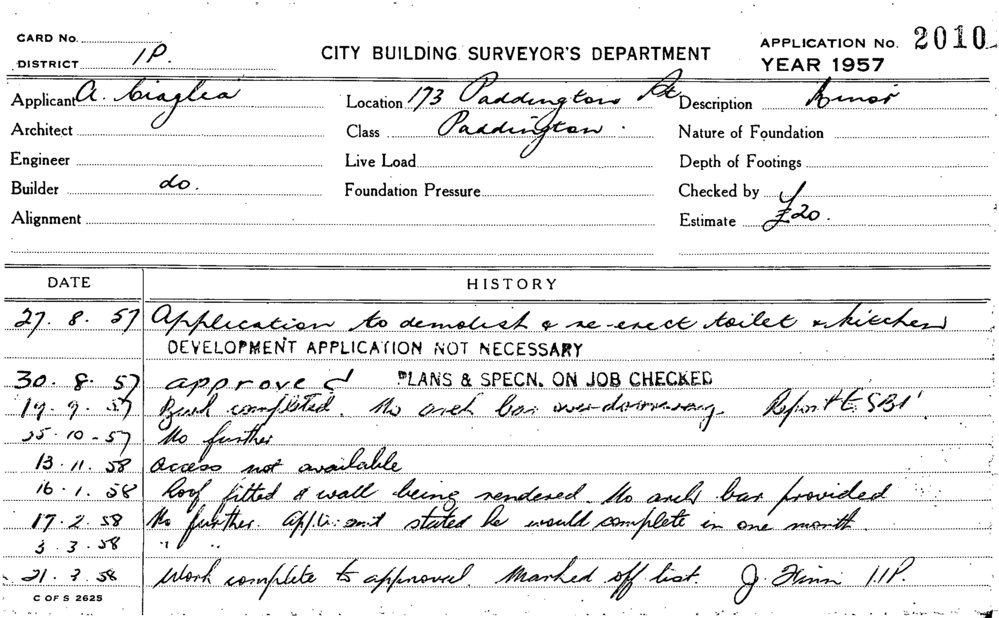 CARD No.
DISTRICT 1P.
CITY BUILDING SURVEYOR'S DEPARTMENT
APPLICATION No. 2010
YEAR 1957
Applicant A. Ciaglia Location 173 Paddington St Description Minor
Architect Class Paddington. Nature of Foundation
Engineer Live Load Depth of Footings
Builder do. Foundation Pressure Checked by
Alignment Estimate £20.
DATE HISTORY
27. 8. 57 Application to demolish & re-erect toilet & kitchen
DEVELOPMENT APPLICATION NOT NECESSARY
30. 8. 57 approved PLANS & SPECN. ON JOB CHECKED
19. 9. 57 completed. No arch bar over Report to SBI.
25. 10 - 57 No further
13. 11. 58 Access not available
16. 1. 58 Roof fitted & wall being rendered. No arch bar provided
17. 2. 58 No further. Applicant stated he would complete in one month
3. 3. 58 " "
21. 3. 58 Work complete to approval. Marked off list. J. Flinn 11P.
C OF S 2625